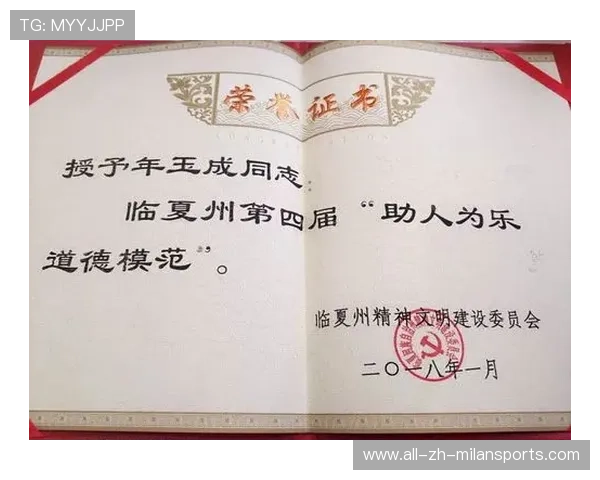 TG: MYYJJPP
荣誉证书
授予年玉成同志：
临夏州第四届“助人为乐
道德模范”。
临夏州精神文明建设委员会
二〇一八年一月
www.all-zh-milansports.com